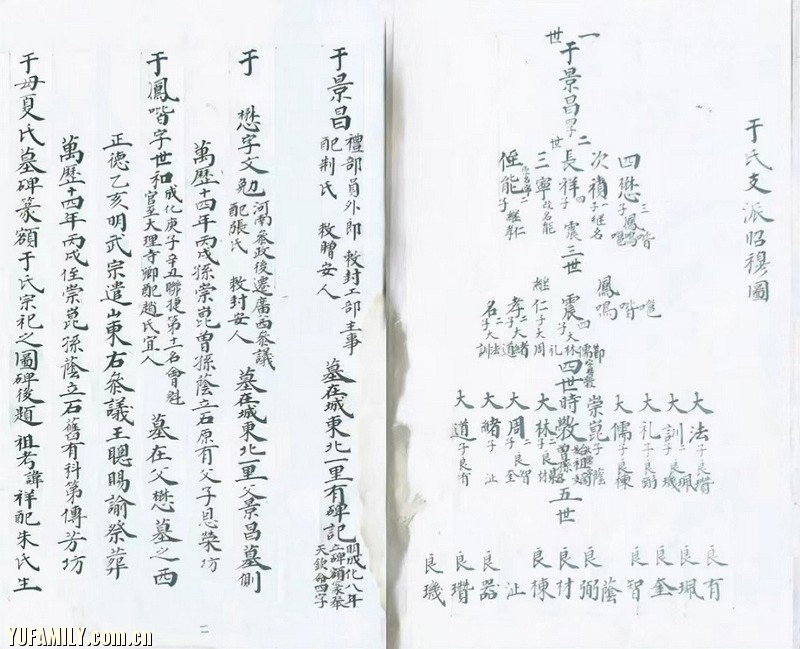 于氏支派昭穆圖
一世
于景昌四子
二世
四懋三子鳳喈鳳鳴
次禎
長祥
三寧改名能
任能子繼孝仁
三世
鳳鳴喈嗈
震四子大林儒礼
繼仁子大周
孝二子大緒道
名二子大法訓
四世
大法子良瓚
大訓二子良璣珮
大礼子良弼
大儒子良棟
崇崑子蔭
時敎
大林二子良材
大周二子良智奎
大緒子沚
大道子良有
五世
良有
良珮
良奎
良智
蔭
良弼
良材
良棟
沚
良器
良瓚
良璣
于景昌禮部員外郎 敕封工部主事 配荆氏 敕贈安人 墓在城東北一里有碑記明成化八年立碑碩篆華天欽會四子
于 懋字文勉河南參政後遷廣西參議 配張氏 敕封安人 墓在城東北一里父景昌墓側
萬歷十四年丙戌孫崇崑曽孫蔭立石原有父子恩榮坊
于鳳喈字世和成化庚子辛丑聯捷第十一名會魁 官至大理寺卿配趙氏宜人 墓在父懋墓之西
正德乙亥明武宗遣山東右參議王聰賜諭祭葬
萬歷十四年丙戌侄崇崑孫蔭立石舊有科第傳芳坊
于母夏氏墓碑篆額于氏宗祀之圖碑後題 祖考諱祥配朱氏生
二
YUFAMILY.com.cn